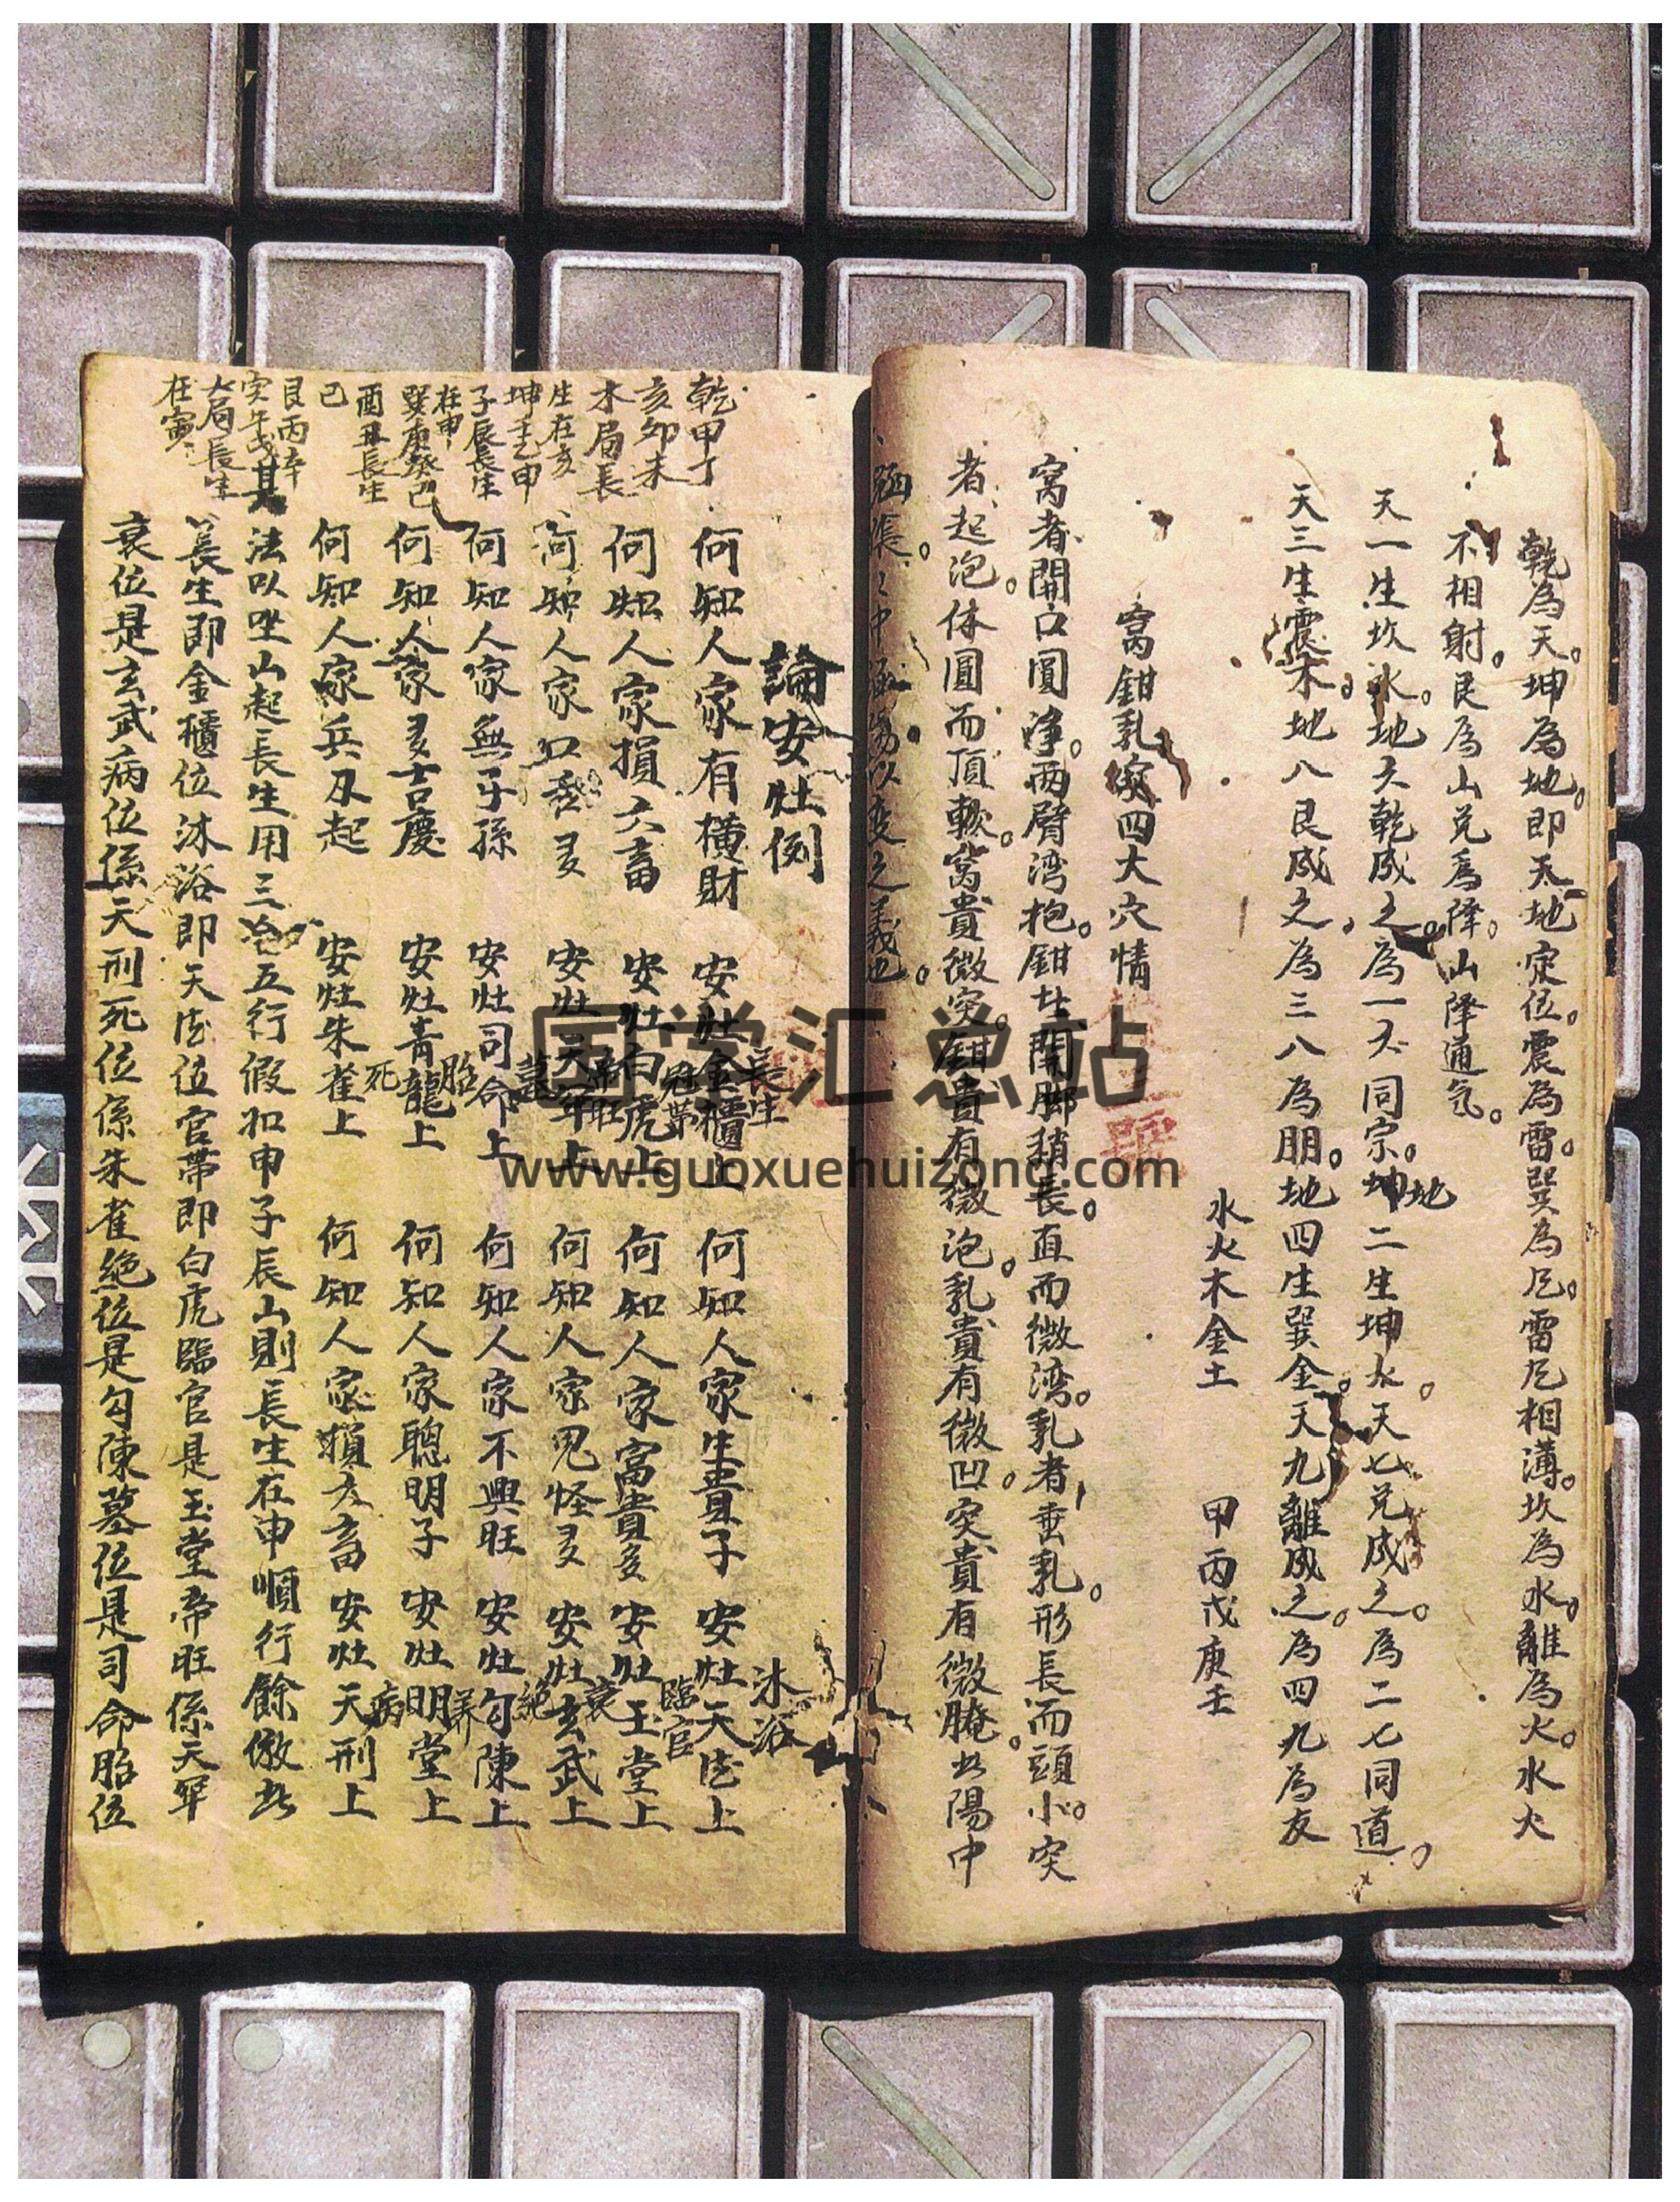 乾為天。坤為地。即天地定位。震為雷。巽為
雷
相薄。坎為水。離為火。水火
不相射。艮為山兌為降。山降通气。
天一生坎水。地六乾成之。為一六同宗。坤地二生坤火。天七兌成之。為二七同道。
天三生震木。地八艮成之。為三八為朋。地四生巽金。天九離成之。為四九為友
水火木金土 甲丙戊庚壬
窝鉗乳突四大穴情
窝者開口圓净。両臂湾抱。鉗者開脚稍長。直而微湾。乳者垂乳。形長而頭小。突
者起泡。体圓而頂軟。窝貴微突。鉗貴有微泡。乳貴有微凹。突貴有微腌。此陽中
以变之義也。
論安灶例
乾甲丁
亥卯未
木局長
生在亥
坤壬乙申
子辰長生
在申
巽庚癸巳
酉丑長生
巳
艮丙辛
寅午戌
火局長生
在寅
何知人家有橫財 安灶金櫃上 何知人家生貴子 安灶天德上
長生
沐浴
何知人家損六畜 安灶白虎上 何知人家富貴多 安灶玉堂上
冠帶
臨官
何知人家口舌多 安灶天牢上 何知人家鬼怪多 安灶玄武上
帝旺
衰
何知人家無子孫 安灶司命上 何知人家不興旺 安灶勾陳上
墓
絕
何知人家多吉慶 安灶青龍上 何知人家聰明子 安灶明堂上
胎
养
何知人家兵刄起 安灶朱雀上 何知人家損六畜 安灶天刑上
死
病
其法以坐山起長生用三合五行假如申子辰山則長生在申順行餘倣此
長生即金櫃位沐浴即天德位官帶即白虎臨官是玉堂帝旺係天牢
衰位是玄武病位係天刑死位係朱雀絕位是勾陳墓位是司命胎位
国学汇总站
www.guoxuehuizong.com